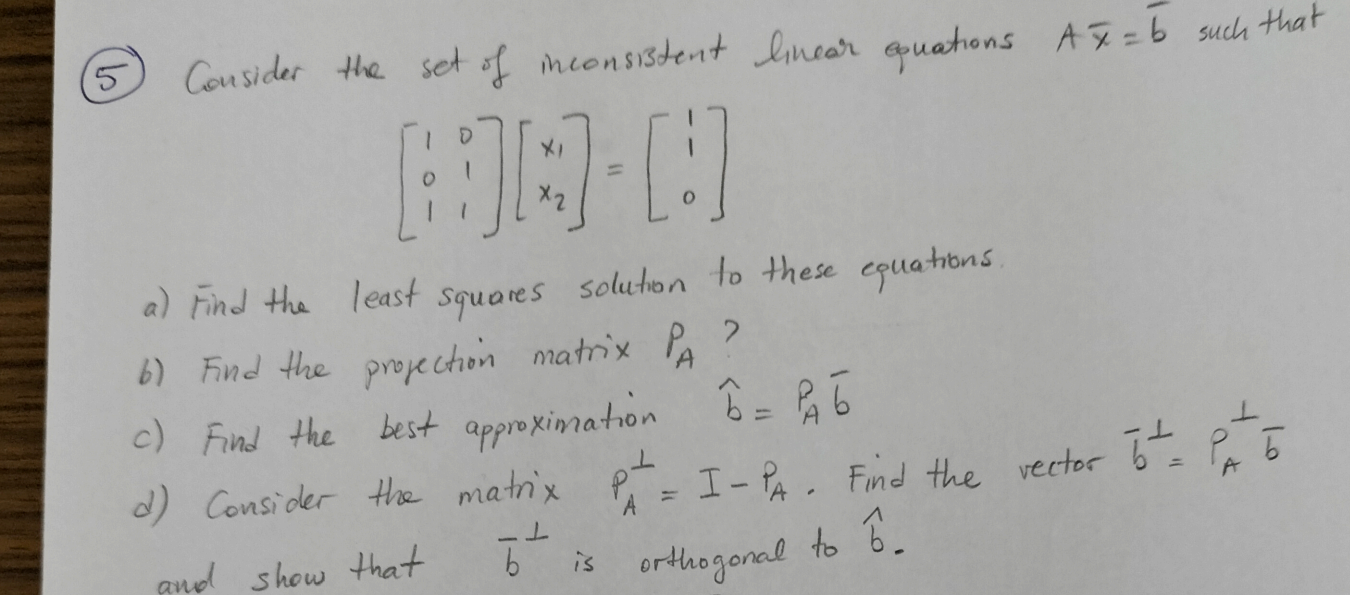 5 Consider the set of inconsistent linear equations A x̄ = b̄ such that
[1 0; 0 1; 1 1] [x₁; x₂] = [1; 1; 0]
a) Find the least squares solution to these equations.
b) Find the projection matrix P_A ?
c) Find the best approximation b̂ = P_A b̄
d) Consider the matrix P_A^⊥ = I - P_A . Find the vector b̄^⊥ = P_A^⊥ b̄
and show that b̄^⊥ is orthogonal to b̂.